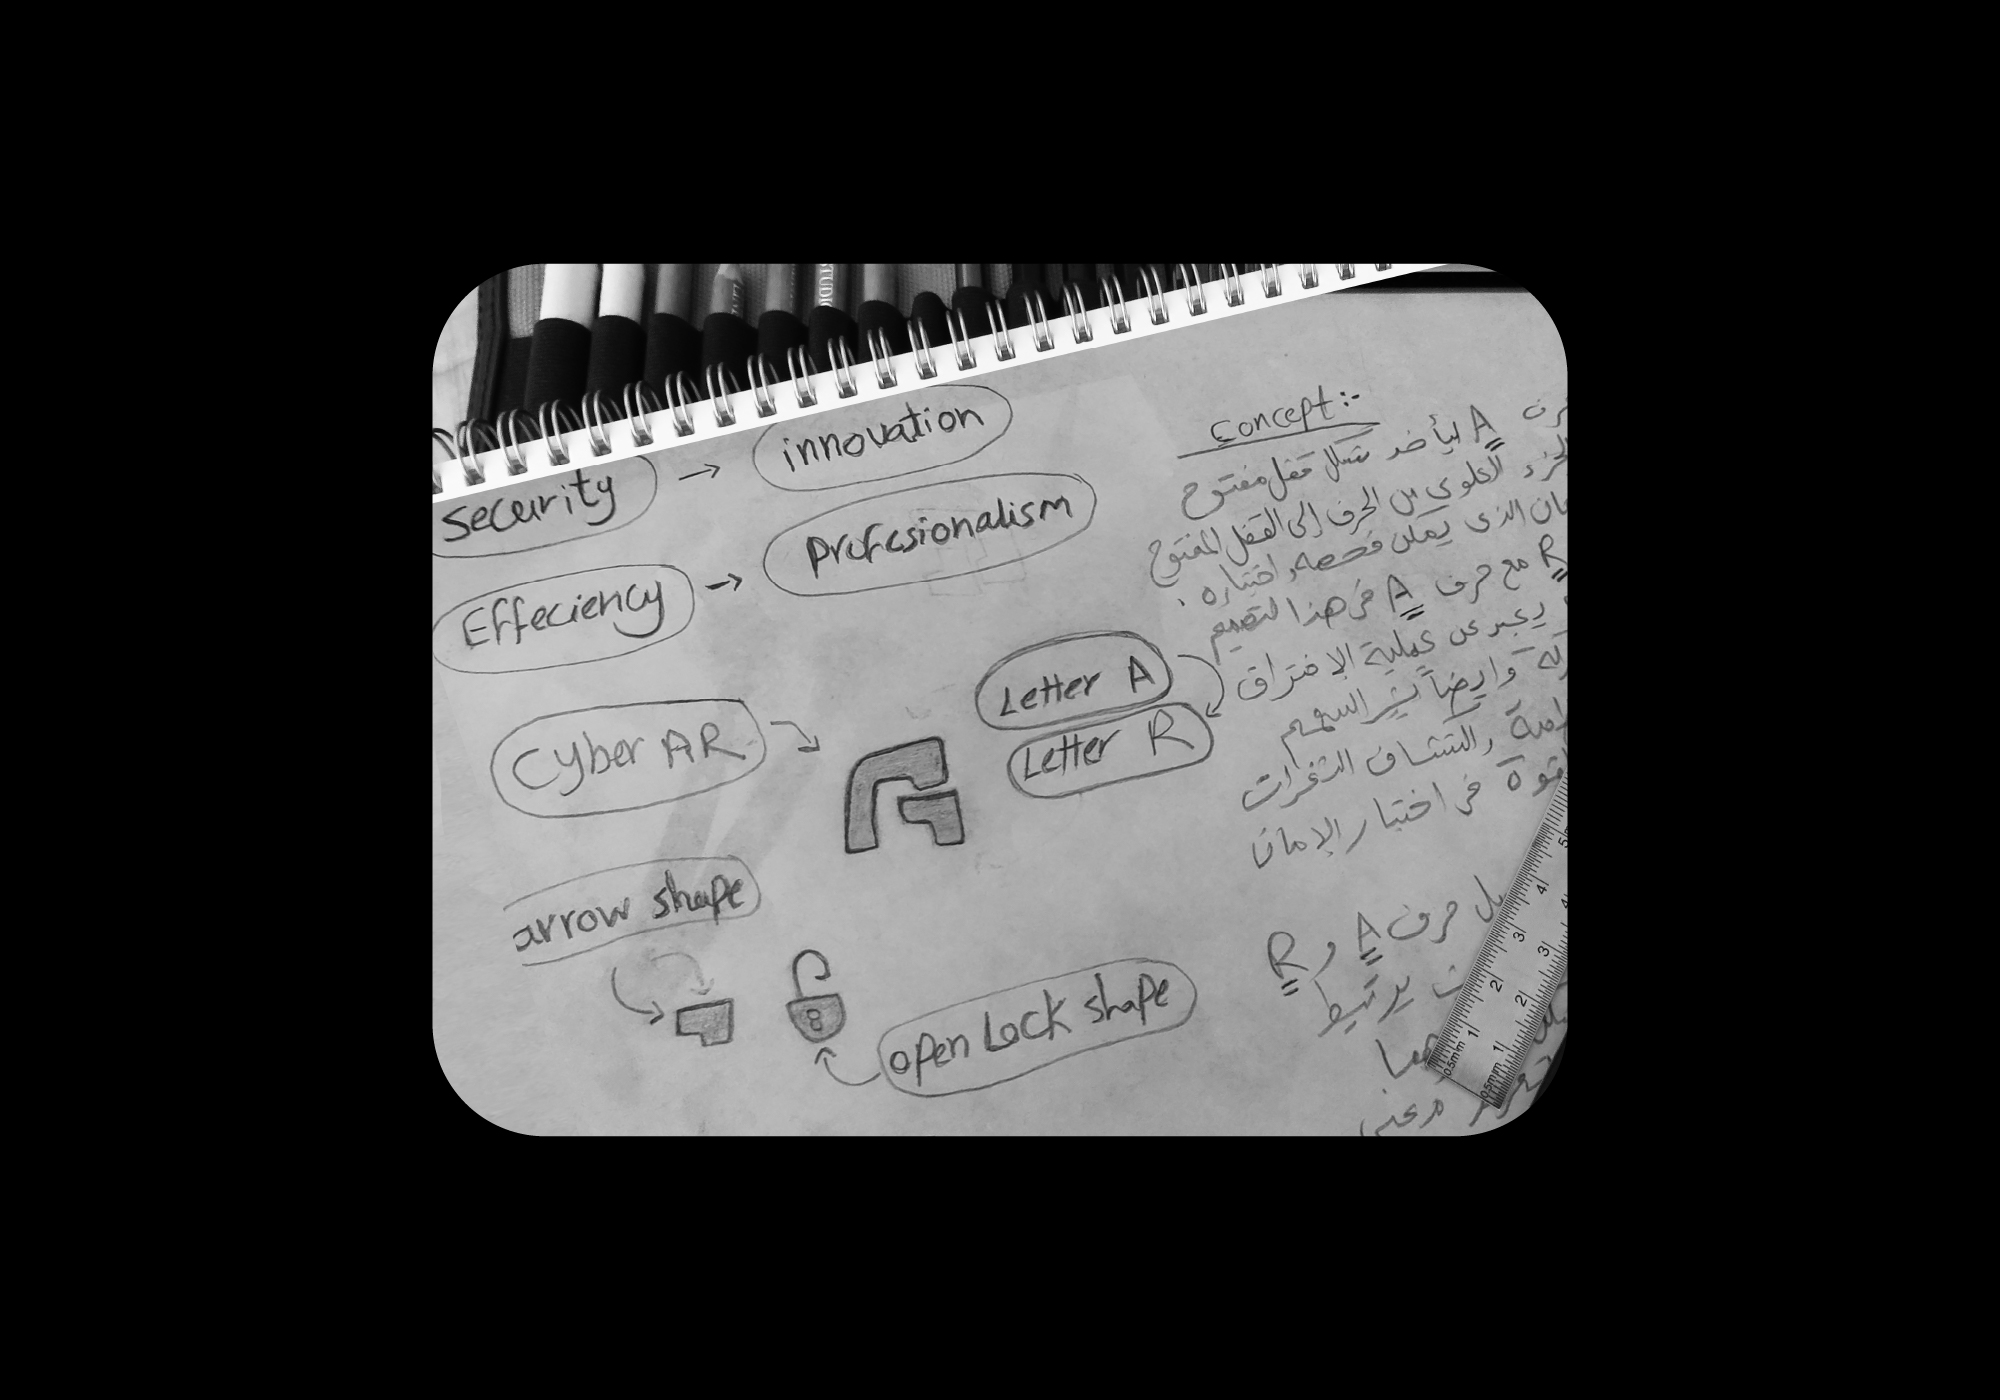 security → innovation
Effeciency → Profcsionalism
Cyber AR
Letter A
Letter R
arrow shape
open Lock shape
Concept :-
A ليأخذ شكل قفل مفتوح
العلوي من الحرف إلى القفل المفتوح
الذى يمكن فحصه واختباره .
R مع حرف A فى هذا التصميم
يعبر عن عملية الإختراق
وايضاً يشير السهم
واكتشاف الثغرات
قوة فى اختبار الامان
حرف A و R
يرتبط
معنى
STUDIO
0.5mm 1 2 3 4 5
0.5mm 1 2 3 4